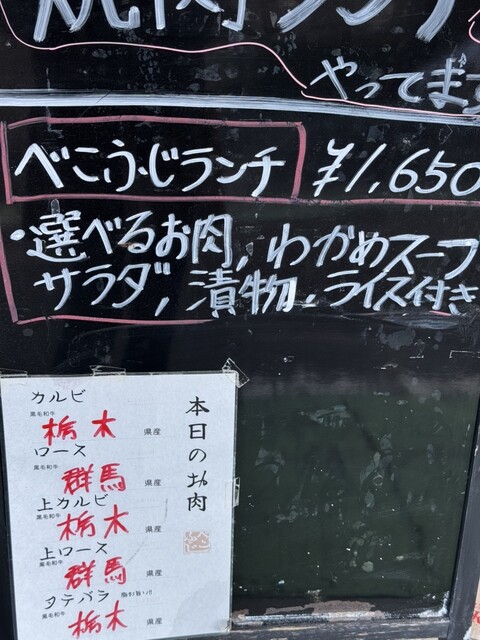 焼肉ランチ
やってます
べこふじランチ ¥1,650
・選べるお肉, わかめスープ
サラダ, 漬物・ライス付き
本日のお肉
カルビ
黒毛和牛 栃木 県産
ロース
黒毛和牛 群馬 県産
上カルビ
黒毛和牛 栃木 県産
上ロース
黒毛和牛 群馬 県産
タテバラ
黒毛和牛 栃木 県産